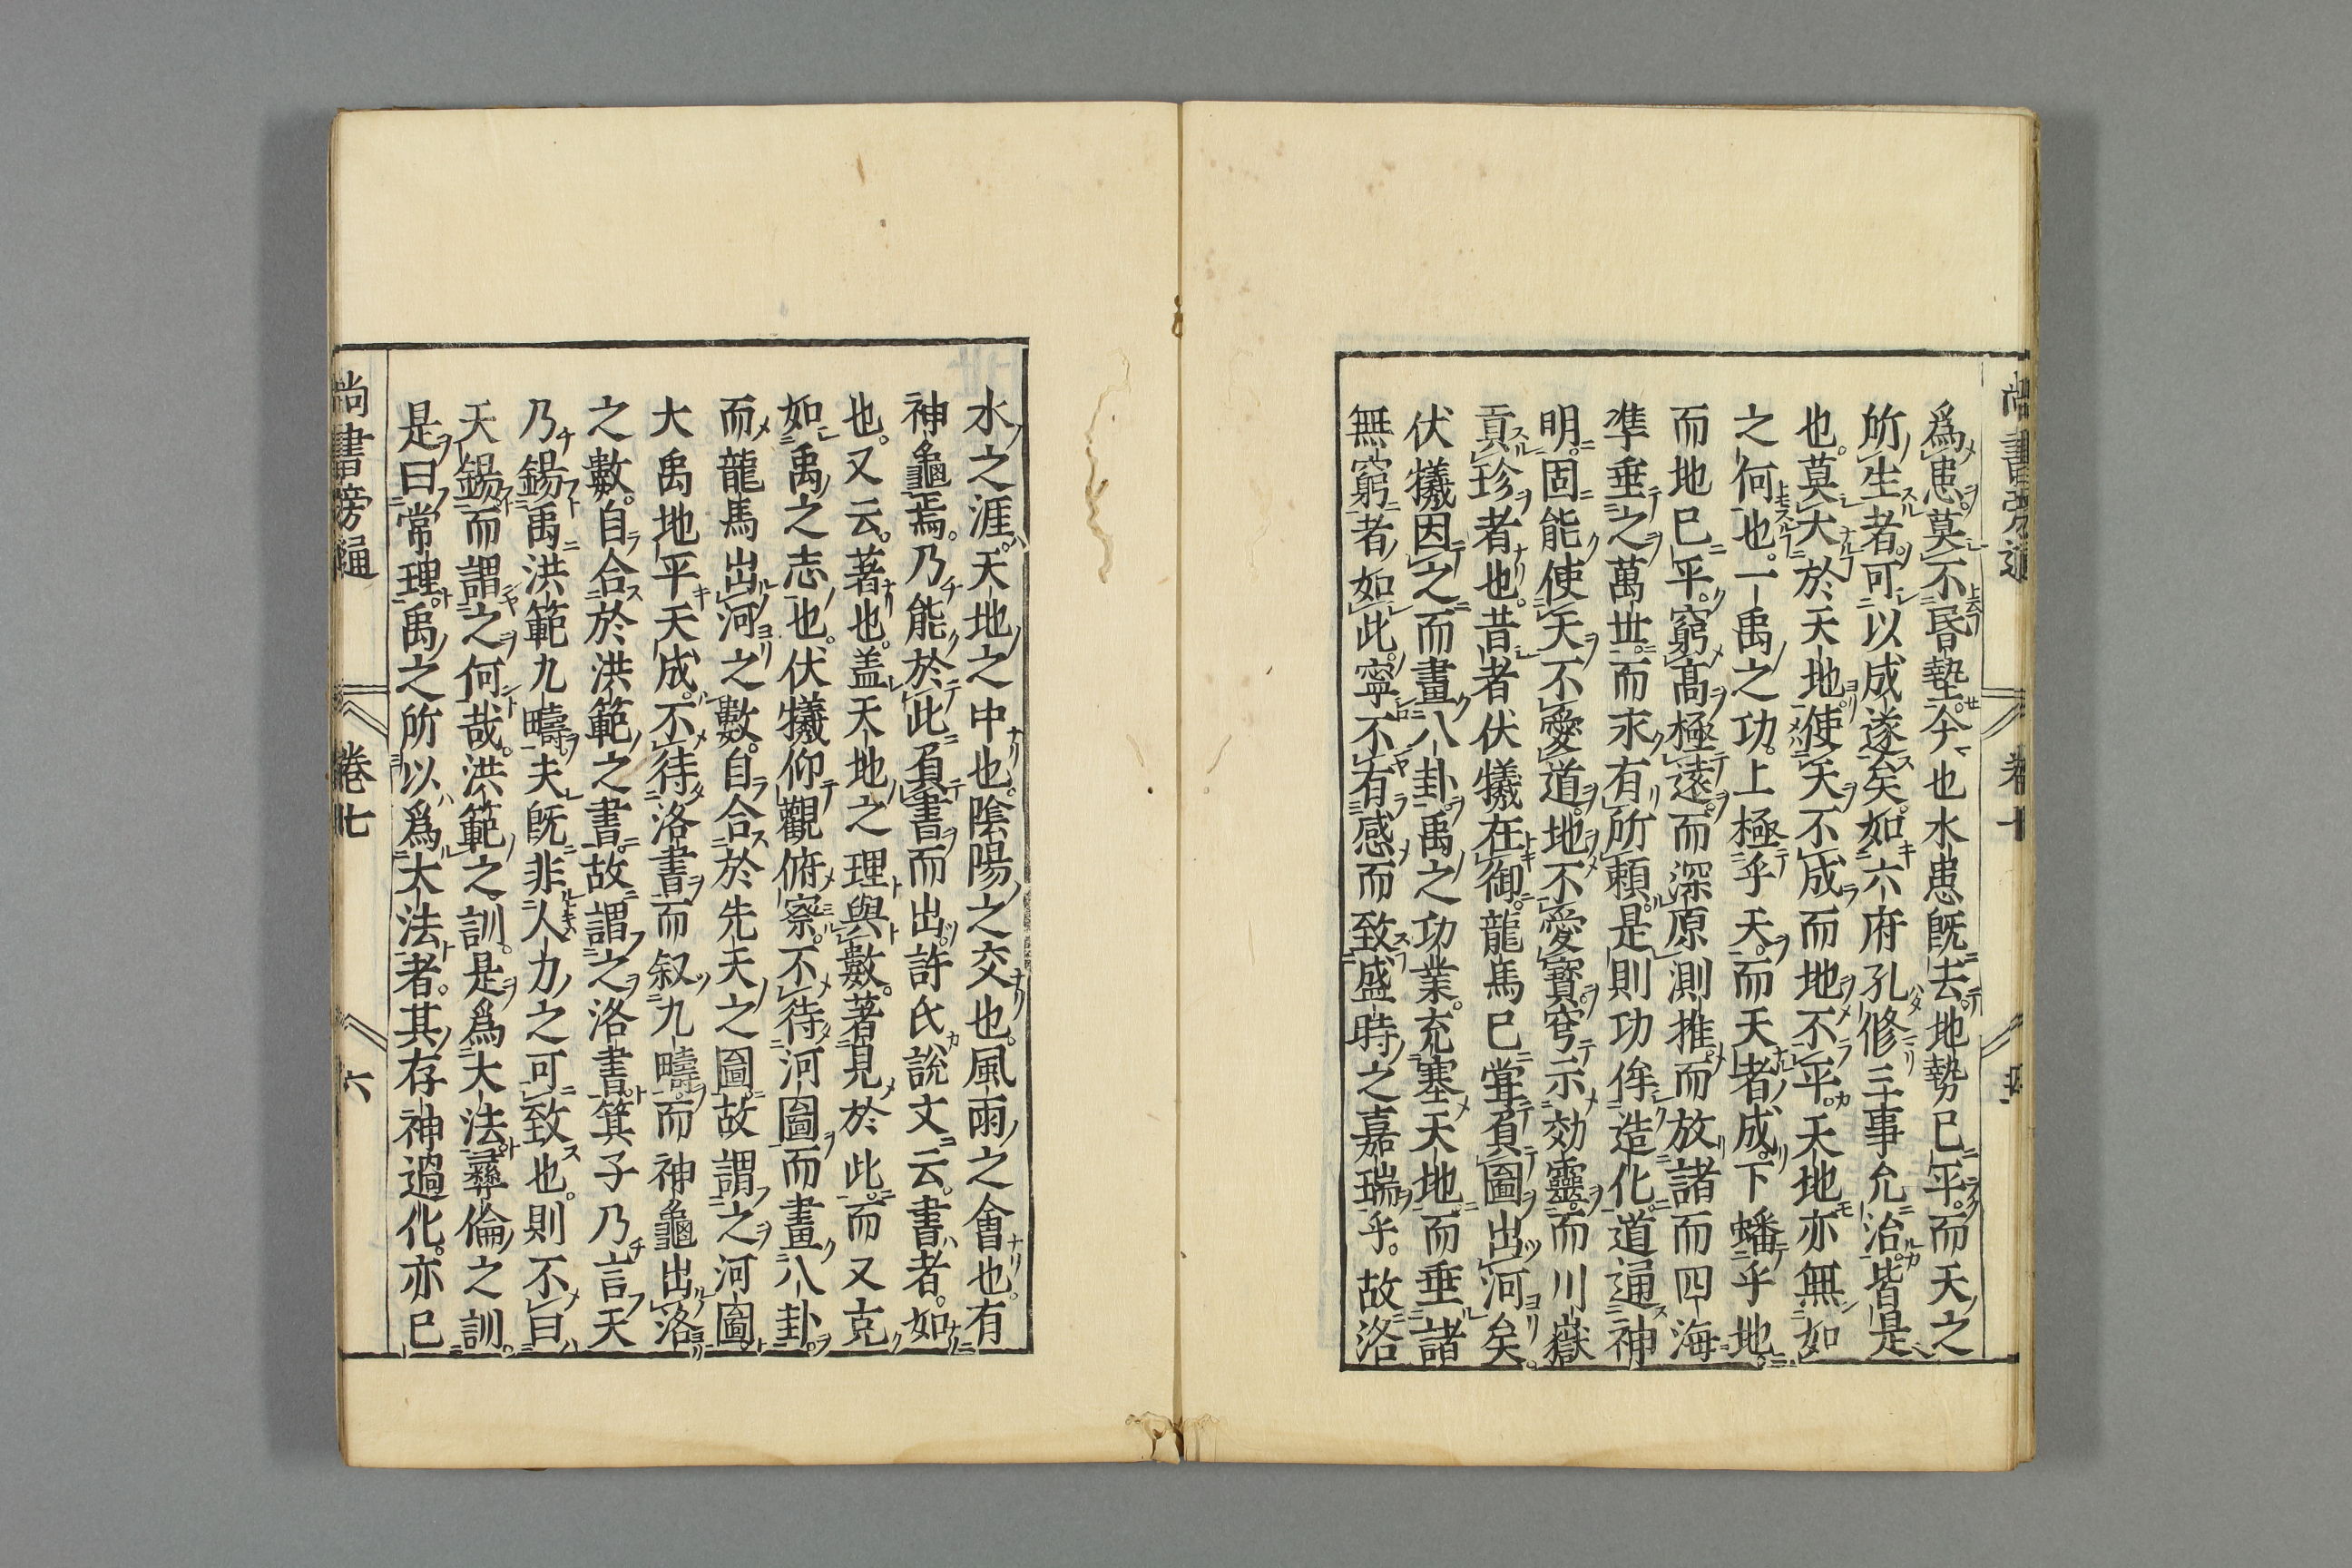 爲患。莫不昏墊。今也水患既去。地勢已平。而天之
所生者。可以成遂矣。如六府孔修三事允治。皆是
也。莫大於天地。使天不成而地不平。天地亦無如
之何也。一禹之功。上極乎天。而天者成。下蟠乎地。
而地已平。窮髙極遠。而深原測推。而放諸而四海
準垂之萬世。而求有所賴。是則功侔造化。道通神
明。固能使天不愛道。地不愛寳。穹示効靈。而川嶽
貢珍者也。昔者伏犧在御。龍馬已嘗負圖出河矣。
伏犧因之而畫八卦。禹之功業。充塞天地。而垂諸
無窮者如此。寧不有感而致盛時之嘉瑞乎。故洛
水之涯。天地之中也。陰陽之交也。風雨之會也。有
神龜焉。乃能於此負書而出。許氏說文云。書者。如
也。又云。著也。盖天地之理與數。著見於此。而又克
如禹之志也。伏犧仰觀俯察。不待河圖而畫八卦。
而龍馬出河之數。自合於先天之圖。故謂之河圖
大禹地平天成。不待洛書而叙九疇。而神龜出洛
之數。自合於洪範之書。故謂之洛書。箕子乃言天
乃錫禹洪範九疇。夫既非人力之可致也。則不曰
天錫而謂之何哉。洪範之訓。是爲大法。彛倫之訓。
是曰常理。禹之所以爲大法者。其存神過化。亦已
尚書旁通
卷七
六